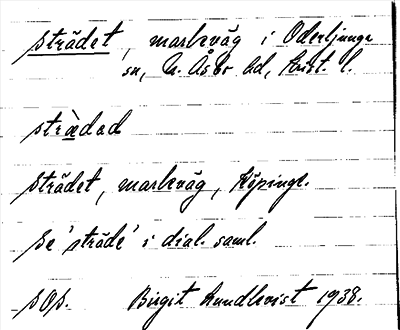 strädet, markväg i Oderljunga
sn, N. Åsbo hd, Krist. l.
strädad
Strädet, markväg, Köpinge.
Se 'sträde' i dial. saml.
sOp. Birgit Lundkvist 1938.